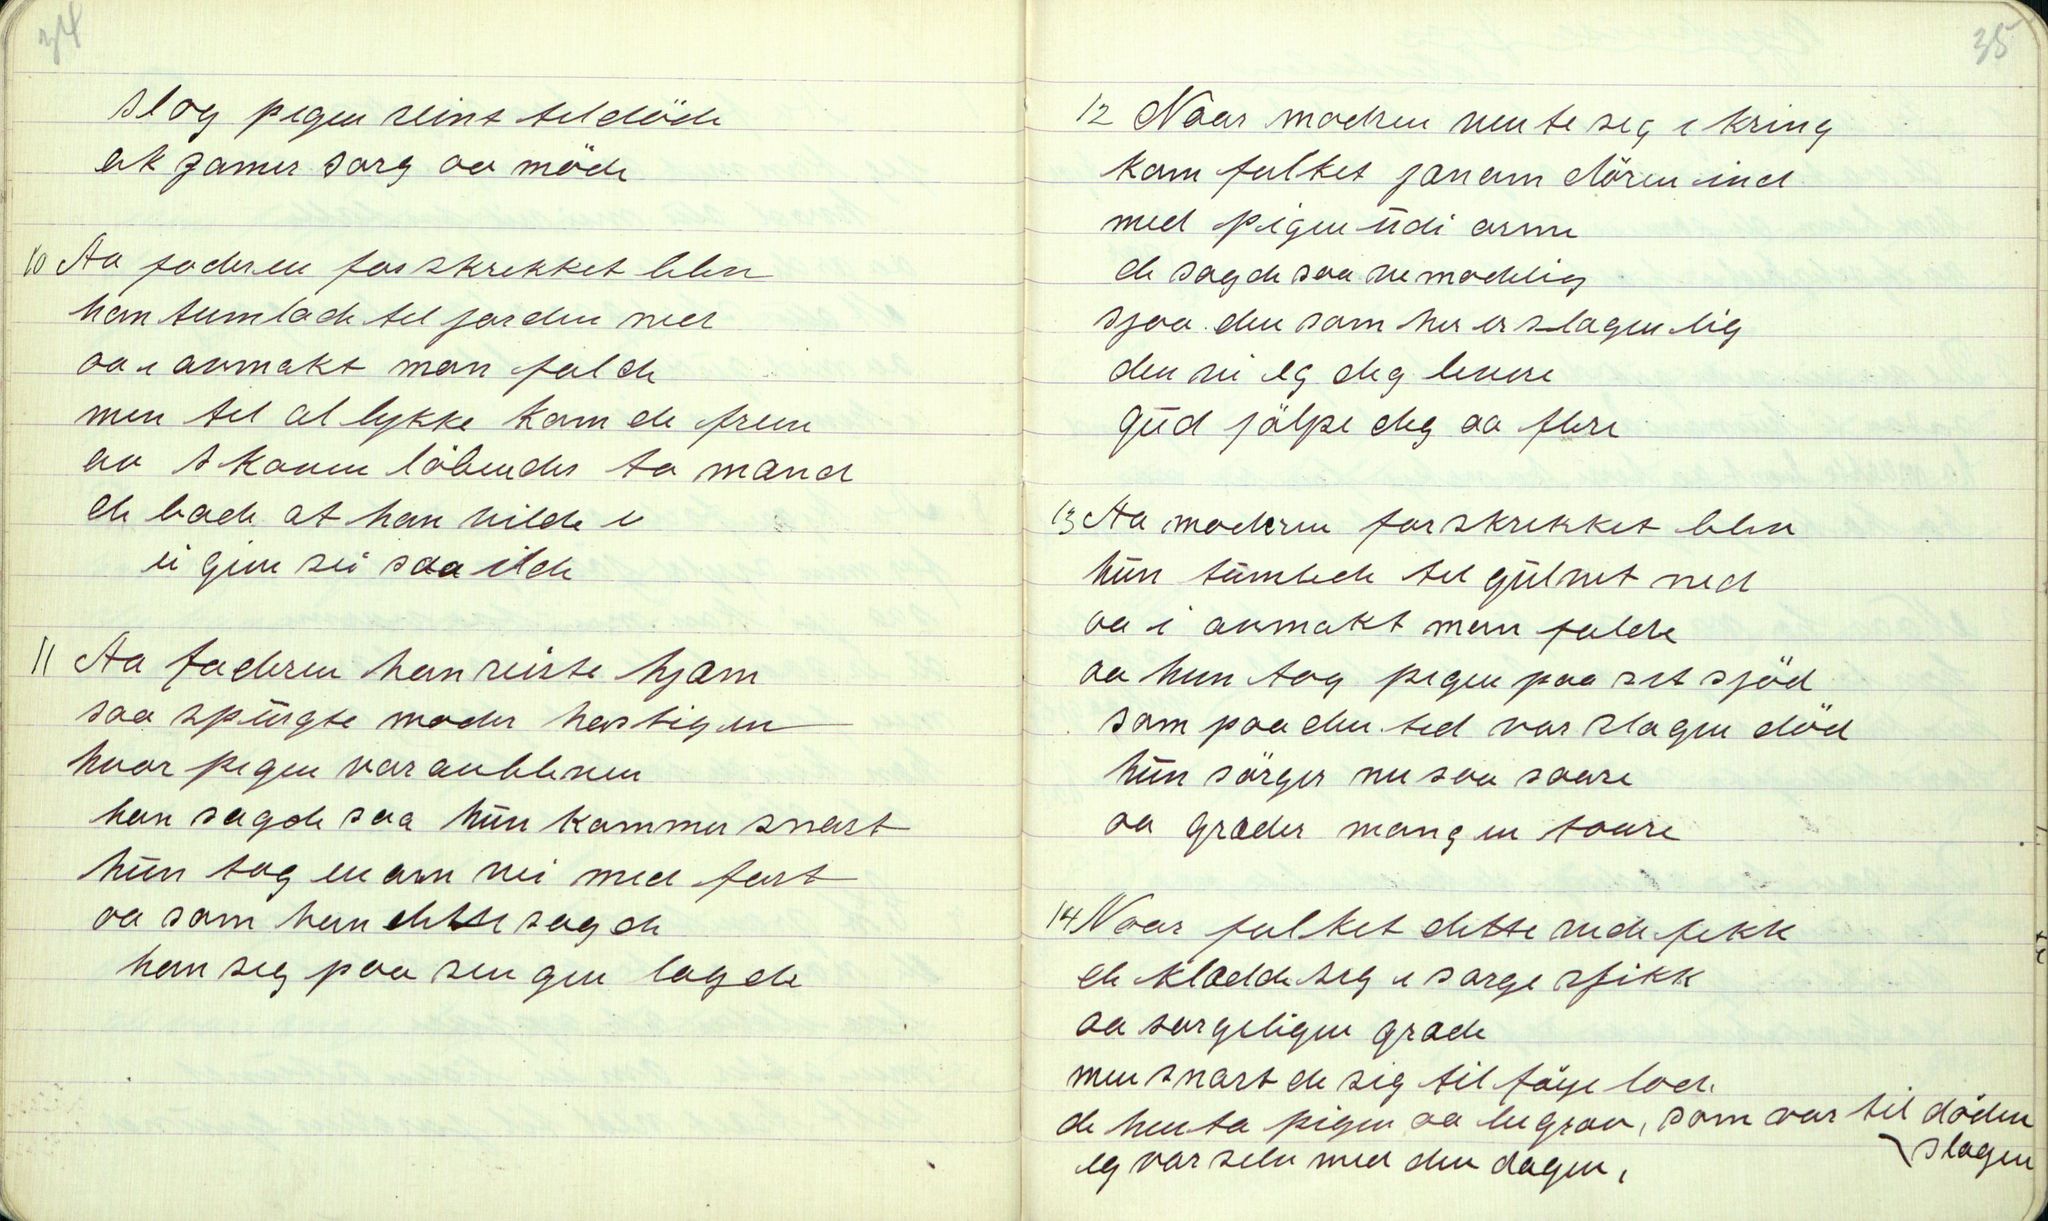 34
slog pigen reint til döde
ak jamer sorg oa möde
10 Aa faderen forskrekket blev
han tumlade til jorden ned
oa i avmakt man falde
men til al lykke kam de frem
av skoven löbendes to mand
de bade at han vilde
ei give sei saa ilde
11 Aa faderen han reiste hjem
saa spurgte moder hastigen
hvor pigen var aubleven
han sagde saa hun kommer snart
hun tog en arn vei med fart
oa som han dette sagde
han seg paa sengen lagde
35
12 Naar modren vente seg i kring
kam folket janam dören ind
med pigen udi arme
de sagde saa vemodelig
sjaa den som her er slagen lig
den vi eg deg levere
gud jölpe deg oa flere
13 Aa modren forskrekket blev
hun tumlede til gulvet ned
oa i avmakt man falde
oa hun tog pigen paa set sjöd
som paa den tid var slagen död
hun sörger nu saa saare
oa græder mangen taare
14 Naar folket dette vide fekk
de klædde seg i sorge sjikk
oa sorgeligen græde
men snart de sig til föye lod.
de henta pigen oa begrov, som var til döden
slagen
eg var selv med den dagen,